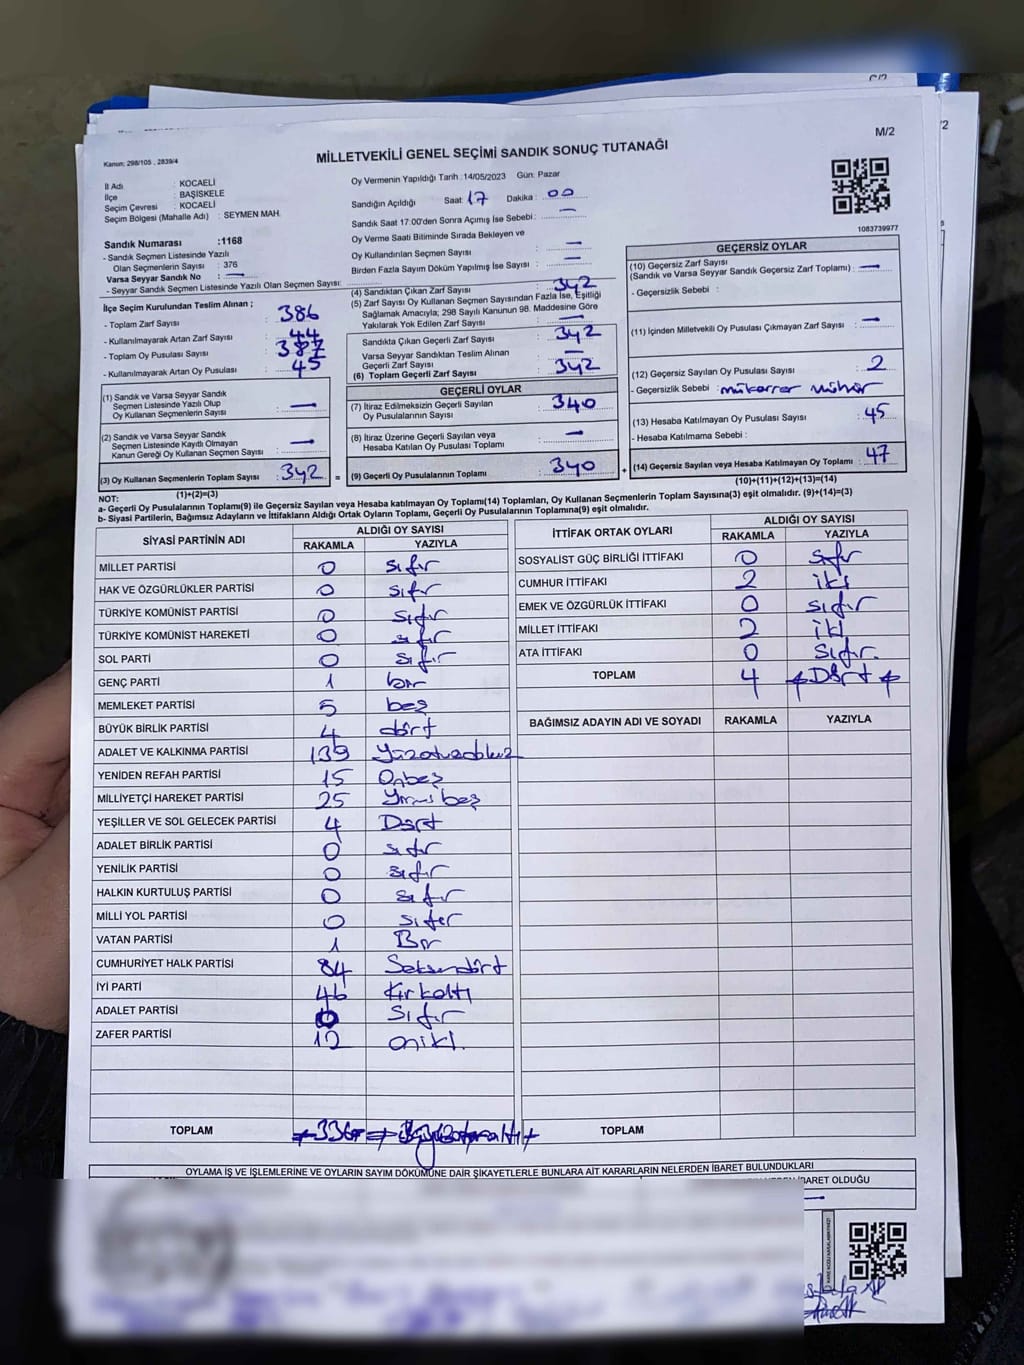 C/2
/2
M/2
Kanun: 298/105 , 2839/4
MİLLETVEKİLİ GENEL SEÇİMİ SANDIK SONUÇ TUTANAĞI
İl Adı : KOCAELİ
İlçe : BAŞİSKELE
Seçim Çevresi : KOCAELİ
Seçim Bölgesi (Mahalle Adı) : SEYMEN MAH.
Oy Vermenin Yapıldığı Tarih :14/05/2023 Gün: Pazar
Sandığın Açıldığı Saat : 17 Dakika : 00
Sandık Saat 17:00'den Sonra Açımış İse Sebebi : —
Oy Verme Saati Bitiminde Sırada Bekleyen ve
Oy Kullandırılan Seçmen Sayısı : —
Birden Fazla Sayım Döküm Yapılmış İse Sayısı : —
1083739977
Sandık Numarası :1168
- Sandık Seçmen Listesinde Yazılı
Olan Seçmenlerin Sayısı : 376
Varsa Seyyar Sandık No : —
- Seyyar Sandık Seçmen Listesinde Yazılı Olan Seçmen Sayısı:
İlçe Seçim Kurulundan Teslim Alınan ;
- Toplam Zarf Sayısı : 386
- Kullanılmayarak Artan Zarf Sayısı : 44
- Toplam Oy Pusulası Sayısı : 387
- Kullanılmayarak Artan Oy Pusulası : 45
(1) Sandık ve Varsa Seyyar Sandık
Seçmen Listesinde Yazılı Olup
Oy Kullanan Seçmenlerin Sayısı : —
(2) Sandık ve Varsa Seyyar Sandık
Seçmen Listesinde Kaydı Olmayan
Kanun Gereği Oy Kullanan Seçmen Sayısı : —
(3) Oy Kullanan Seçmenlerin Toplam Sayısı : 342 =
(1)+(2)=(3)
(4) Sandıktan Çıkan Zarf Sayısı : 342
(5) Zarf Sayısı Oy Kullanan Seçmen Sayısından Fazla İse, Eşitliği
Sağlamak Amacıyla; 298 Sayılı Kanunun 98. Maddesine Göre
Yakılarak Yok Edilen Zarf Sayısı : —
Sandıkta Çıkan Geçerli Zarf Sayısı : 342
Varsa Seyyar Sandıktan Teslim Alınan
Geçerli Zarf Sayısı : —
(6) Toplam Geçerli Zarf Sayısı : 342
GEÇERLİ OYLAR
(7) İtiraz Edilmeksizin Geçerli Sayılan
Oy Pusulalarının Sayısı : 340
(8) İtiraz Üzerine Geçerli Sayılan veya
Hesaba Katılan Oy Pusulası Toplamı : —
(9) Geçerli Oy Pusulalarının Toplamı : 340 +
GEÇERSİZ OYLAR
(10) Geçersiz Zarf Sayısı
(Sandık ve Varsa Seyyar Sandık Geçersiz Zarf Toplamı) : —
- Geçersizlik Sebebi :
(11) İçinden Milletvekili Oy Pusulası Çıkmayan Zarf Sayısı : —
(12) Geçersiz Sayılan Oy Pusulası Sayısı : 2
- Geçersizlik Sebebi : mükerrer mühür
(13) Hesaba Katılmayan Oy Pusulası Sayısı : 45
- Hesaba Katılmama Sebebi :
(14) Geçersiz Sayılan veya Hesaba Katılmayan Oy Toplamı : 47
(10)+(11)+(12)+(13)=(14)
NOT:
a- Geçerli Oy Pusulalarının Toplamı(9) ile Geçersiz Sayılan veya Hesaba katılmayan Oy Toplamı(14) Toplamları, Oy Kullanan Seçmenlerin Toplam Sayısına(3) eşit olmalıdır. (9)+(14)=(3)
b- Siyasi Partilerin, Bağımsız Adayların ve İttifakların Aldığı Ortak Oyların Toplamı, Geçerli Oy Pusulalarının Toplamına(9) eşit olmalıdır.
SİYASİ PARTİNİN ADI ALDIĞI OY SAYISI
RAKAMLA YAZIYLA
MİLLET PARTİSİ 0 sıfır
HAK VE ÖZGÜRLÜKLER PARTİSİ 0 sıfır
TÜRKİYE KOMÜNİST PARTİSİ 0 sıfır
TÜRKİYE KOMÜNİST HAREKETİ 0 sıfır
SOL PARTİ 0 sıfır
GENÇ PARTİ 1 bir
MEMLEKET PARTİSİ 5 beş
BÜYÜK BİRLİK PARTİSİ 4 dört
ADALET VE KALKINMA PARTİSİ 139 Yüzotuzdokuz
YENİDEN REFAH PARTİSİ 15 Onbeş
MİLLİYETÇİ HAREKET PARTİSİ 25 Yirmibeş
YEŞİLLER VE SOL GELECEK PARTİSİ 4 Dört
ADALET BİRLİK PARTİSİ 0 sıfır
YENİLİK PARTİSİ 0 sıfır
HALKIN KURTULUŞ PARTİSİ 0 sıfır
MİLLİ YOL PARTİSİ 0 sıfır
VATAN PARTİSİ 1 Bir
CUMHURİYET HALK PARTİSİ 84 Seksendört
İYİ PARTİ 46 Kırkaltı
ADALET PARTİSİ 0 sıfır
ZAFER PARTİSİ 12 oniki.
TOPLAM 336
İTTİFAK ORTAK OYLARI ALDIĞI OY SAYISI
RAKAMLA YAZIYLA
SOSYALİST GÜÇ BİRLİĞİ İTTİFAKI 0 sıfır
CUMHUR İTTİFAKI 2 iki
EMEK VE ÖZGÜRLÜK İTTİFAKI 0 sıfır
MİLLET İTTİFAKI 2 iki
ATA İTTİFAKI 0 sıfır.
TOPLAM 4 Dört
BAĞIMSIZ ADAYIN ADI VE SOYADI RAKAMLA YAZIYLA
TOPLAM
OYLAMA İŞ VE İŞLEMLERİNE VE OYLARIN SAYIM DÖKÜMÜNE DAİR ŞİKAYETLERLE BUNLARA AİT KARARLARIN NELERDEN İBARET BULUNDUKLARI
İBARET OLDUĞU